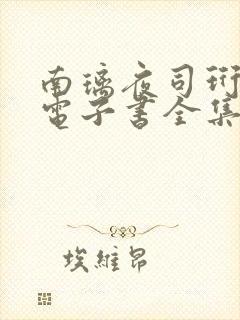 南璃夜司珩
電子書全集
埃維昂